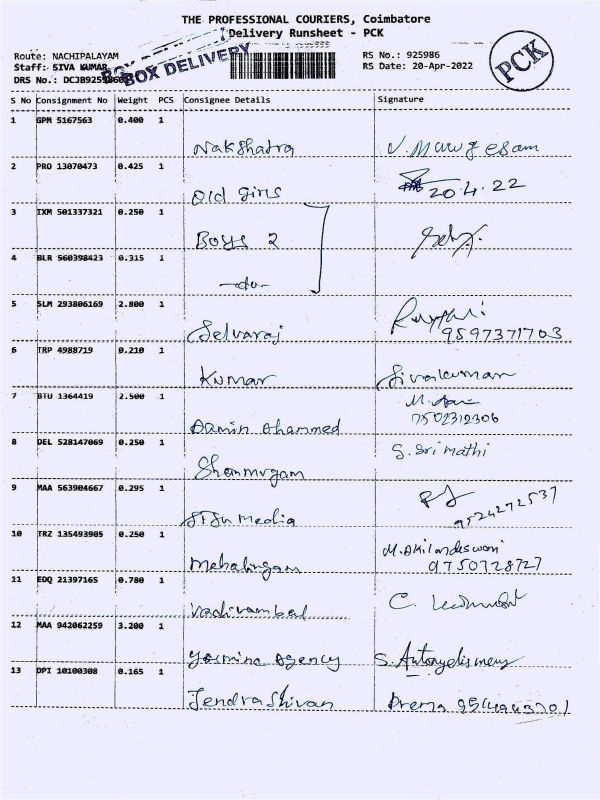 THE PROFESSIONAL COURIERS, Coimbatore
Delivery Runsheet - PCK
BOX DELIVERY
PCK
Route: NACHIPALAYAM
RS No.: 925986
Staff: SIVA KUMAR
RS Date: 20-Apr-2022
DRS No.:
S No Consignment No Weight PCS Consignee Details Signature
1 GPM 5167563 0.400 1
Nakshatra V. Murugesam
2 PRO 13070473 0.425 1
Old Girls 20.4.22
3 IXM 501337321 0.250 1
Boys 2
4 BLR 560398423 0.315 1
-do-
5 SLM 293806169 2.800 1
Selvaraj 9597371703
6 TRP 4988719 0.210 1
Kumar Sivakumar
7 BTU 1364419 2.500 1
7502312306
Aamin Ahammed
8 DEL 528147069 0.250 1
Shanmugam S. Sri Mathi
9 MAA 563904667 0.295 1
Media 9524272537
10 TRZ 135493905 0.250 1
Mehalingam M. Akilandeswari
9750728727
11 EDQ 21397165 0.780 1
Vadivambal C.
12 MAA 942062259 3.200 1
Yasmine Agency S.
13 DPI 10100308 0.165 1
Jendra Shivan Prema